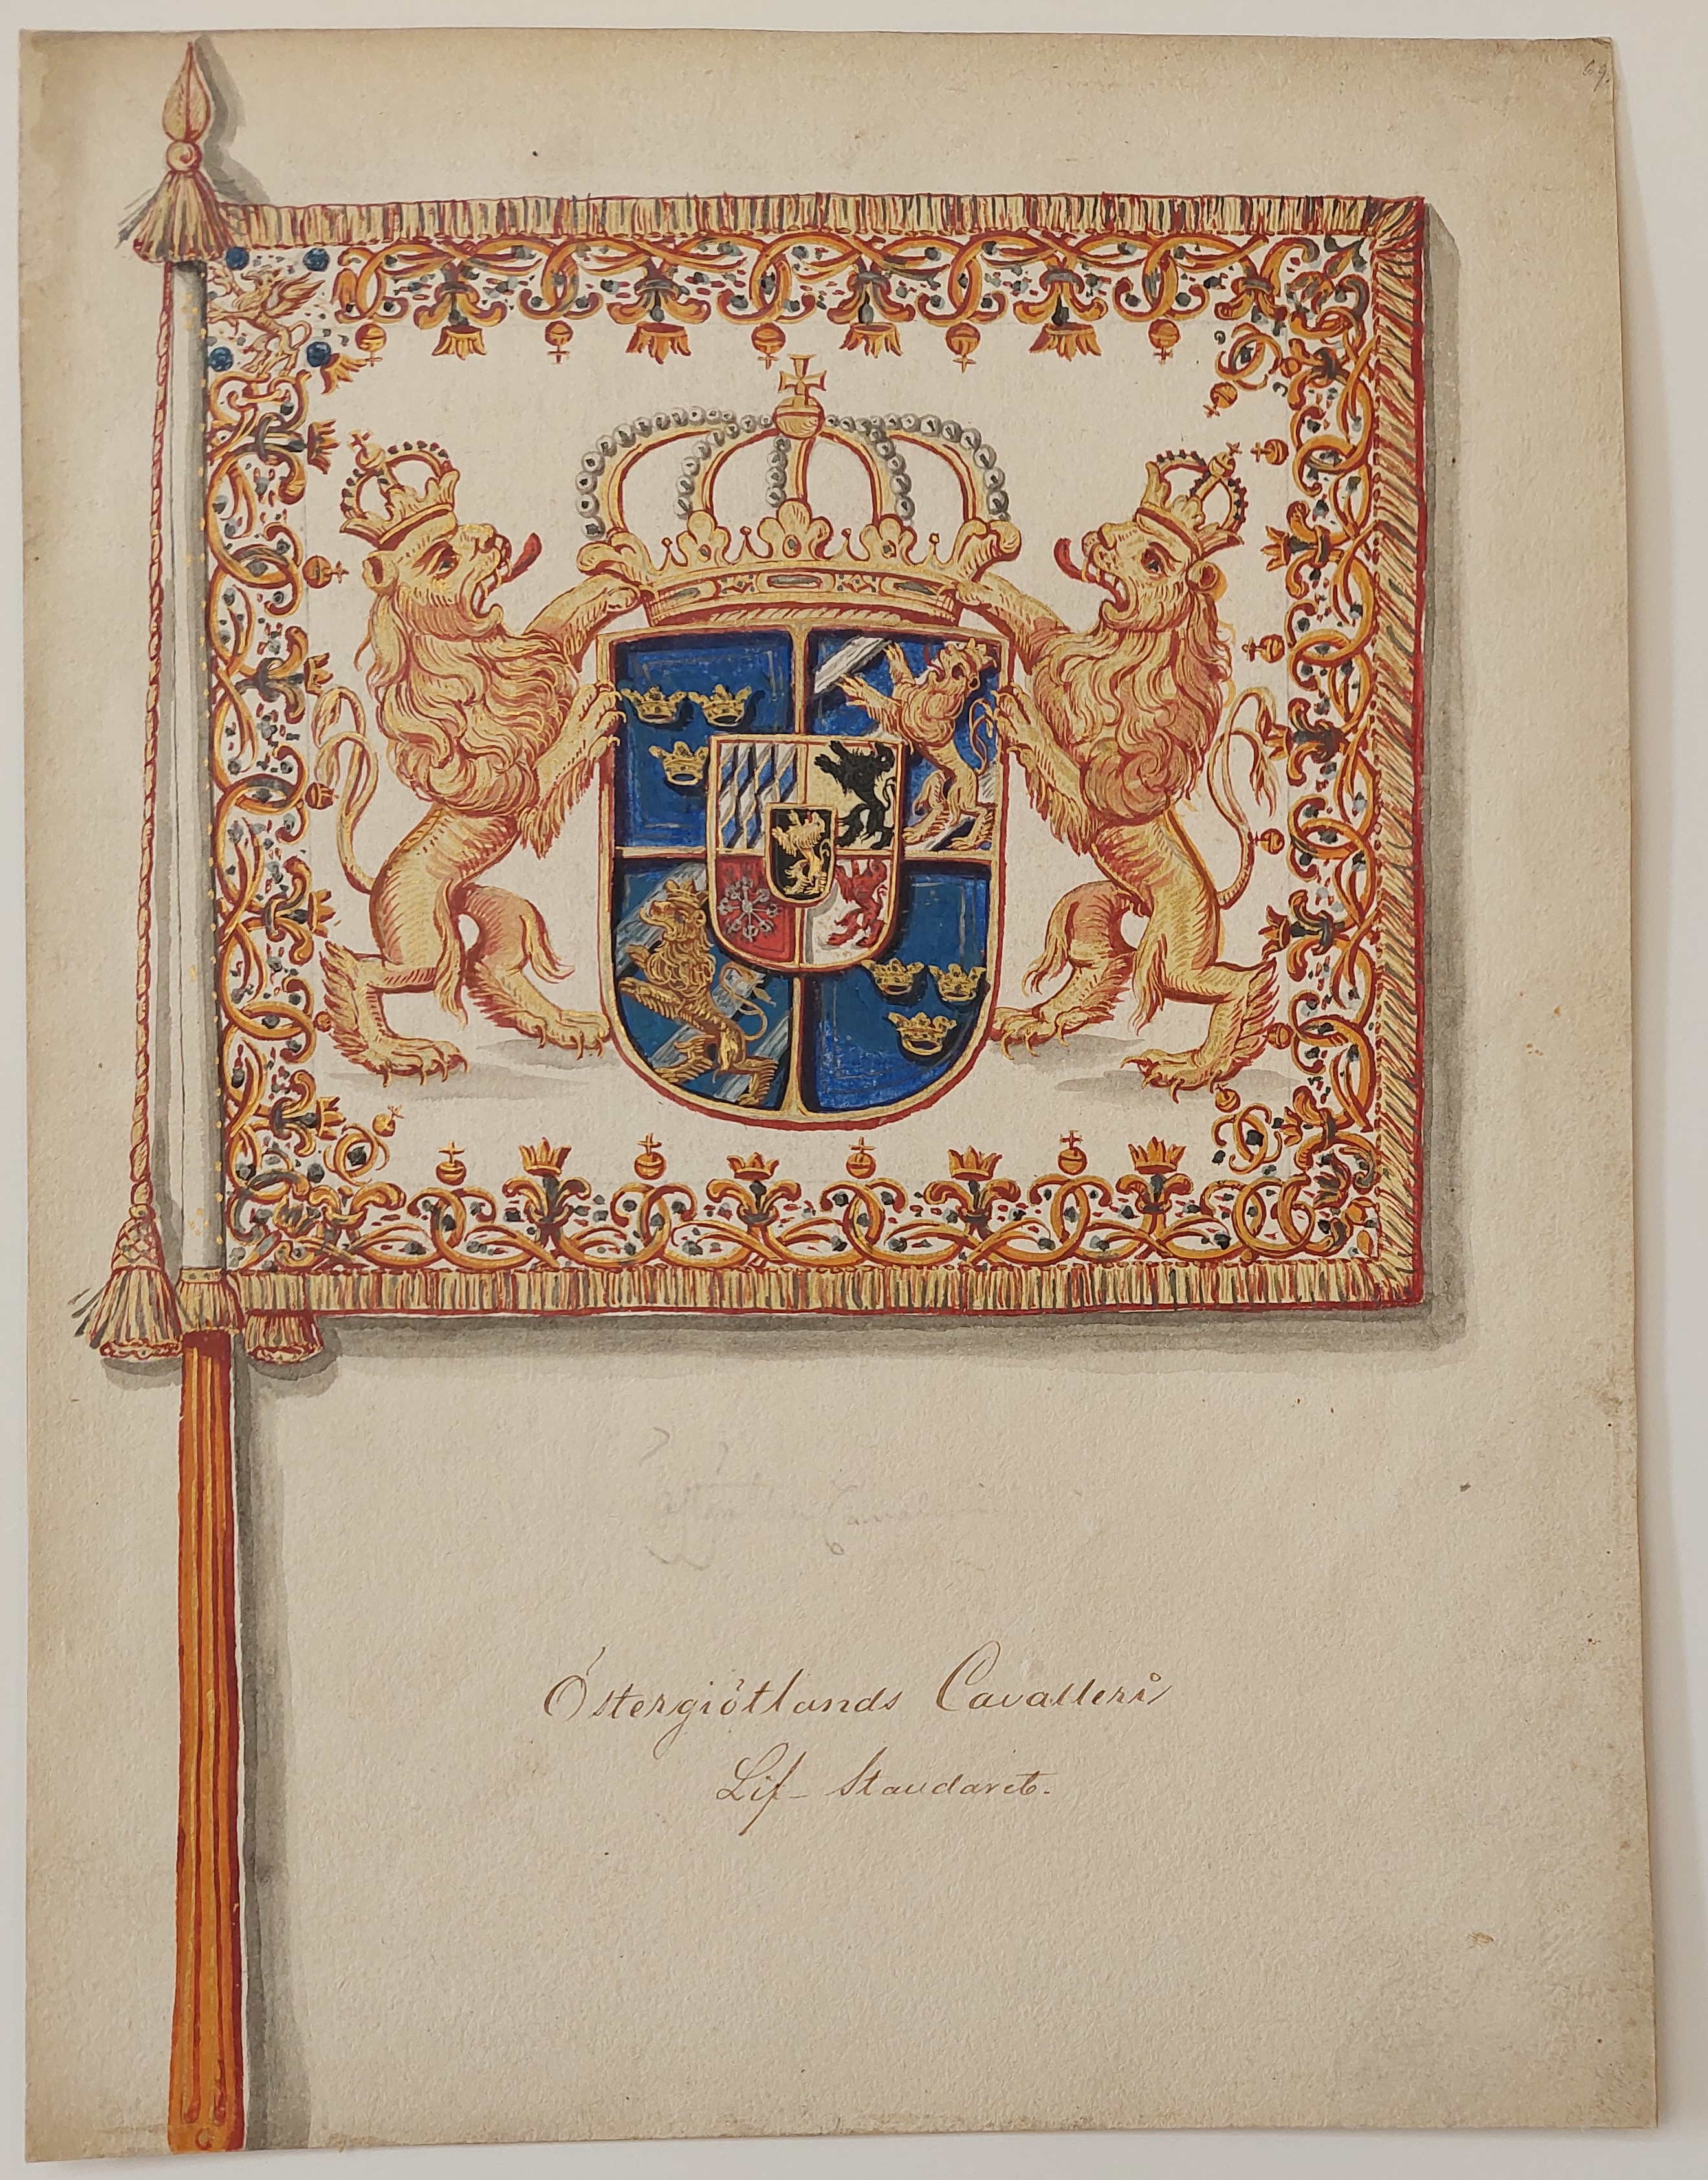 69.
Östergiötlands Cavalleri
Lif- Standaret.